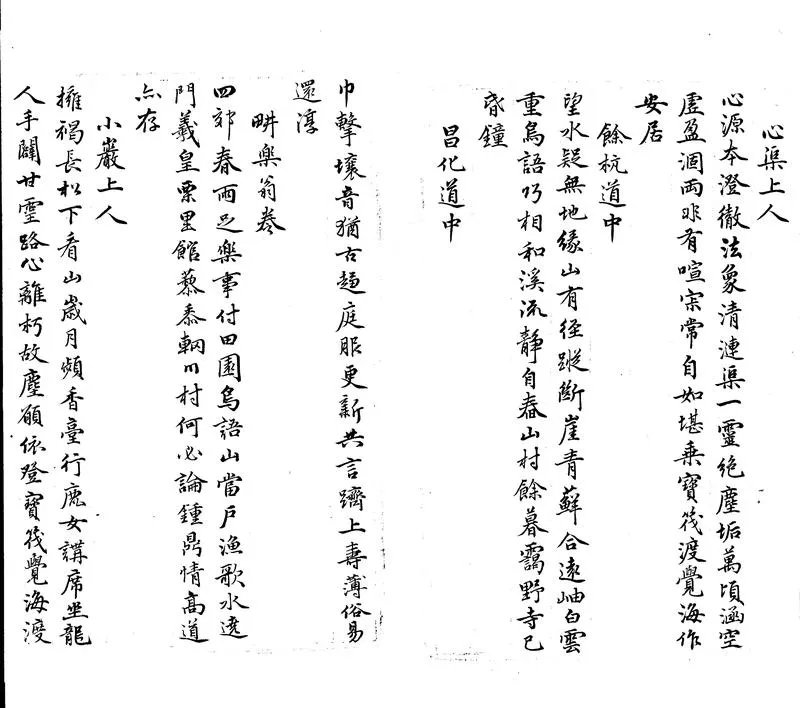 心渠上人
心源本澄徹法象清漣渠一靈絶塵垢萬頃涵空
虛盈涸兩非有喧寂常自如堪乘寶筏渡覺海作
安居
餘杭道中
望水疑無地緣山有徑蹤斷崖青蘚合遠岫白雲
重鳥語巧相和溪流靜自舂山村餘暮靄野寺已
昏鐘
昌化道中
巾擊壤音猶古趨庭服更新共言躋上壽薄俗易
還淳
畊樂翁卷
四郊春雨足樂事付田園鳥語山當戶漁歌水遶
門羲皇栗里館藜黍輞川村何必論鍾鼎情高道
亦存
小巖上人
擁褐長松下看山歲月頻香臺行鹿女講席坐龍
人手闢甘靈路心離朽故塵願依登寶筏覺海渡